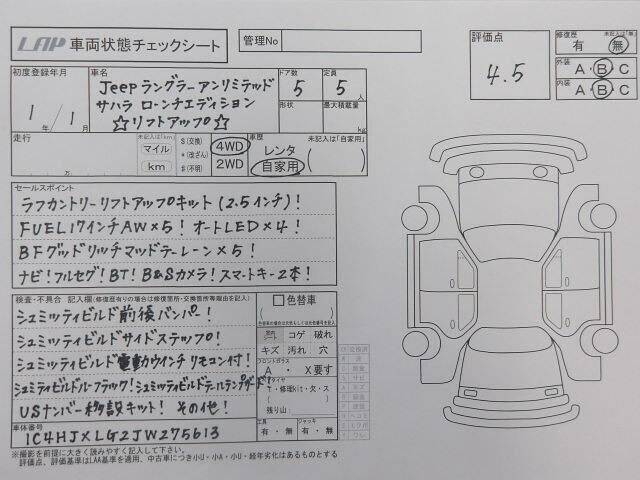 LAP 車両状態チェックシート
管理No
評価点
4.5
修復歴 未記入は「無」
有・無
外装 A・B・C
内装 A・B・C
初度登録年月
1年/1月
車名
Jeepラングラーアンリミテッド
サハラ ローンチエディション
☆リフトアップ☆
ドア数
5
定員
5人
形状
最大積載量
kg
走行 未記入は「km」
マイル
km
万
S(交換)
*(改ざん)
#(不明)
4WD
2WD
車歴 未記入は「自家用」
レンタ
自家用
セールスポイント
ラフカントリーリフトアップキット(2.5インチ)!
FUEL17インチAW×5! オートLED×4!
BFグッドリッチマッドテレーン×5!
ナビ!フルセグ!BT!B&Sカメラ!スマートキー2本!
検査・不具合 記入欄(修復歴有りの場合は修復箇所・交換箇所等報告を記入)
シュミッティビルド前後バンパー!
シュミッティビルドサイドステップ!
シュミッティビルド電動ウインチ リモコン付!
シュミッティビルドルーフラック!シュミッティビルドテールランプガード!
USナンバー移設キット! その他!
色替車
コゲ 破れ
キズ 汚れ 穴
フロントガラス
A ・ X要す
タイヤ
T・修理kit・欠・ス
残り山
工具
有・無
ジャッキ
有・無
車体番号
1C4HJXLG2JW275613
※撮影を前提に大きく読みやすく記入して下さい。
評価点、評価基準はLAA基準を適用、中古車につき小U・小A・小U・経年劣化はあるものとする